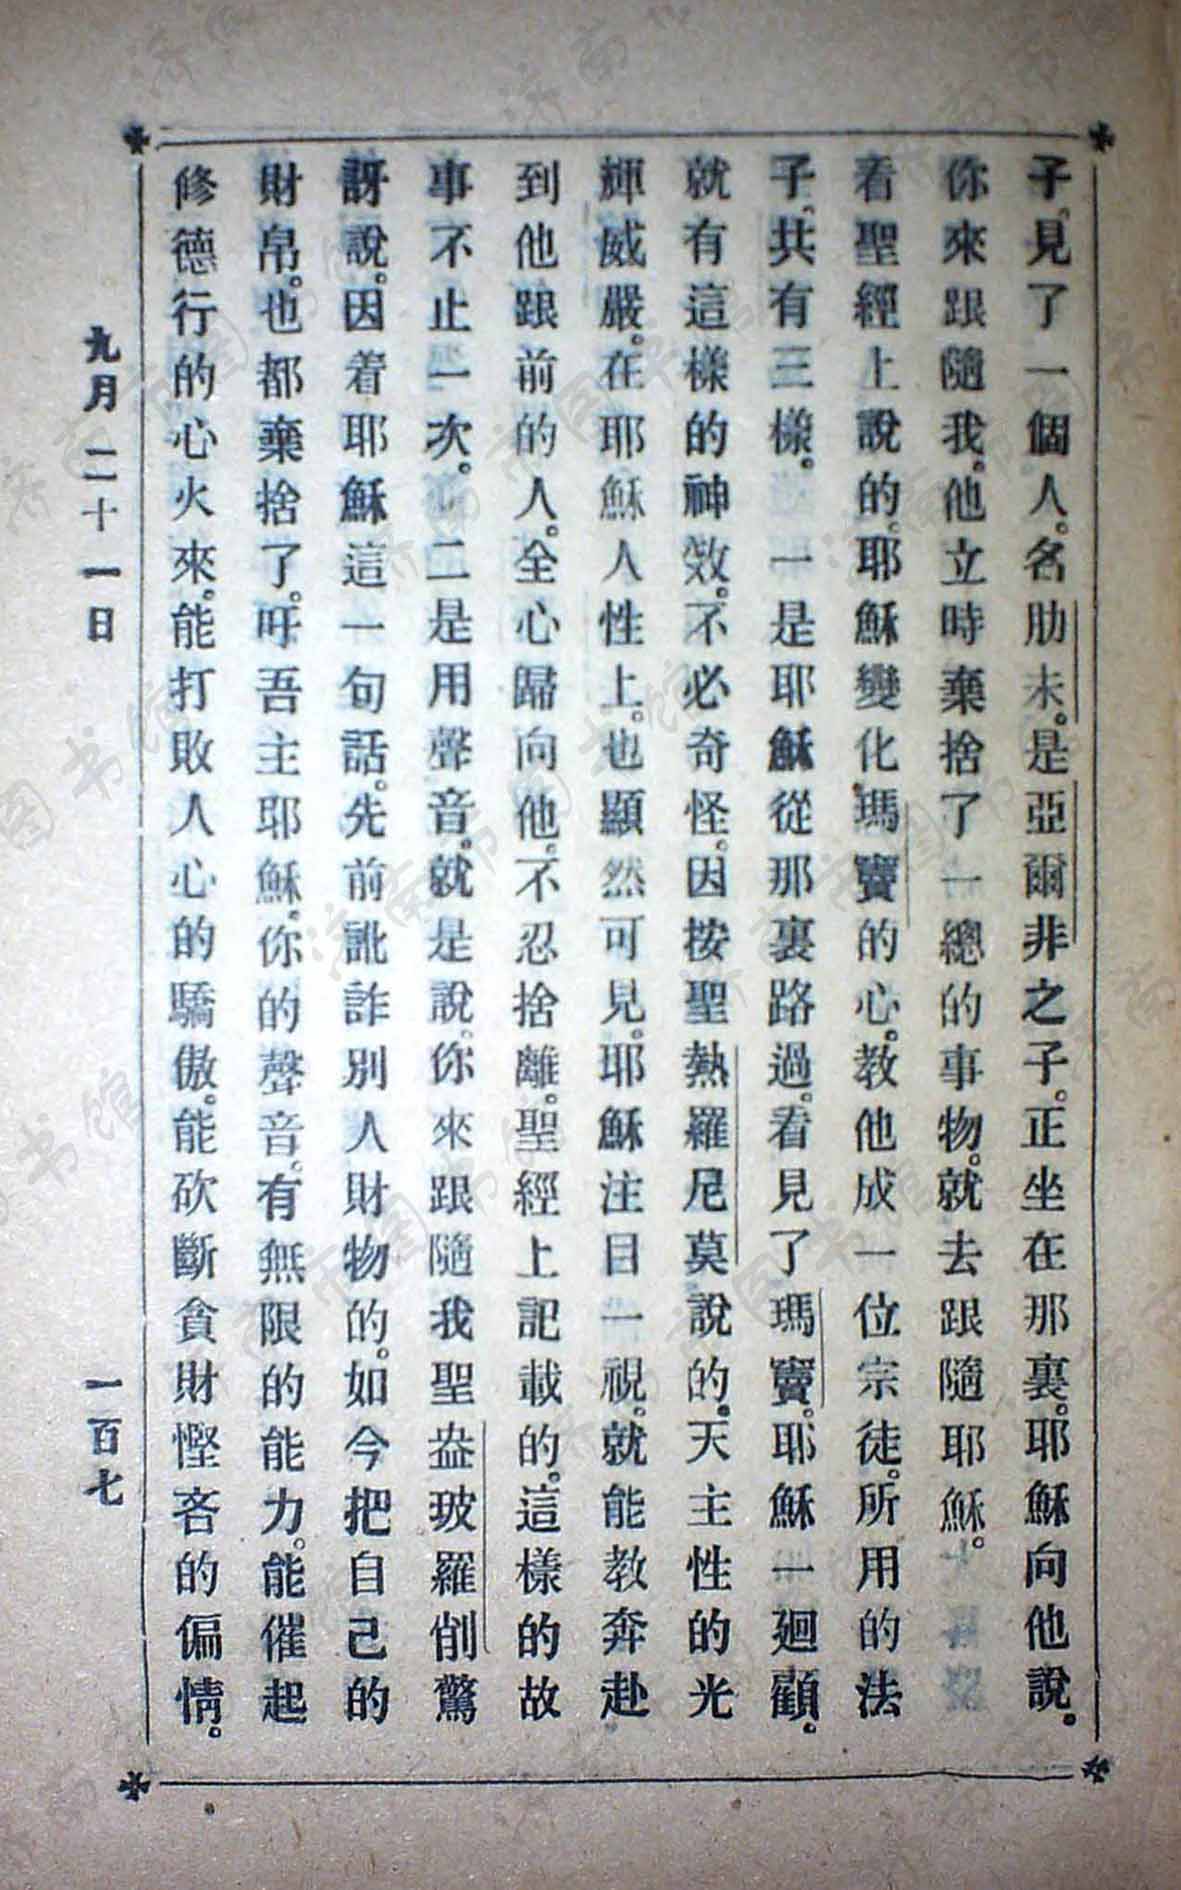 子。見了一個人。名肋未。是亞爾非之子。正坐在那裏。耶穌向他說。
你來跟隨我。他立時棄捨了一總的事物。就去跟隨耶穌。
看聖經上說的。耶穌變化。瑪竇的心。教他成一位宗徒。所用的法
子。共有三樣。一是耶穌從那裏路過。看見了瑪竇。耶穌一廻顧。
就有這樣的神效。不必奇怪。因按聖熱羅尼莫說的。天主性的光
輝威嚴。在耶穌人性上。也顯然可見。耶穌注目一視。就能教奔赴
到他跟前的人。全心歸向他。不忍捨離。聖經上記載的。這樣的故
事不止一次。二是用聲音。就是說。你來跟隨我聖盎玻羅削驚
訝說。因着耶穌這一句話。先前訛詐別人財物的。如今把自己的
財帛。也都棄捨了。吁吾主耶穌。你的聲音。有無限的能力。能催起
修德行的心火來。能打敗人心的驕傲。能砍斷貪財慳吝的偏情。
九月二十一日
一百七